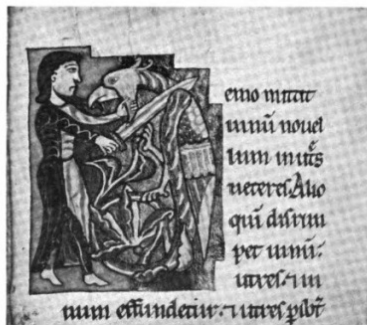 emo mittit
uinū nouel
lum in ūtes
ueteres. Alio
quī disrum
pet uinū:
utres. & ui
num effundetur. & utres pibt̄